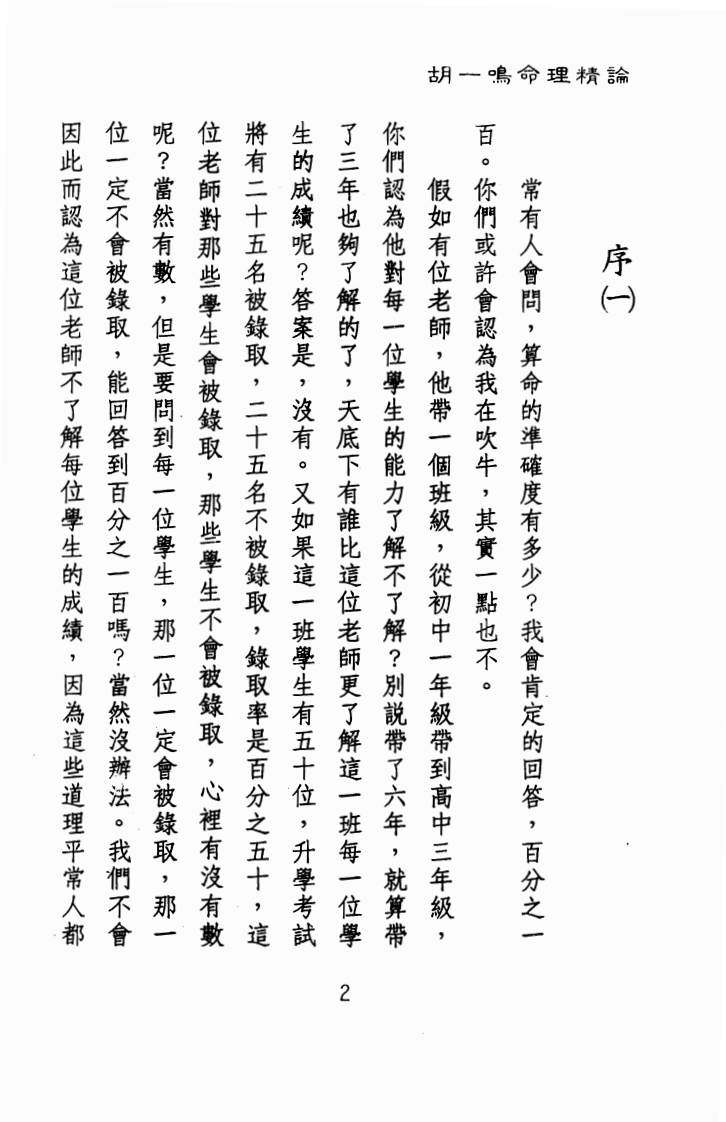 胡一鳴命理精論
序㈠
常有人會問，算命的準確度有多少？我會肯定的回答，百分之一
百。你們或許會認為我在吹牛，其實一點也不。
假如有位老師，他帶一個班級，從初中一年級帶到高中三年級，
你們認為他對每一位學生的能力了解不了解？別說帶了六年，就算帶
了三年也夠了解的了，天底下有誰比這位老師更了解這一班每一位學
生的成績呢？答案是，沒有。又如果這一班學生有五十位，升學考試
將有二十五名被錄取，二十五名不被錄取，錄取率是百分之五十，這
位老師對那些學生會被錄取，那些學生不會被錄取，心裡有沒有數
呢？當然有數，但是要問到每一位學生，那一位一定會被錄取，那一
位一定不會被錄取，能回答到百分之一百嗎？當然沒辦法。我們不會
因此而認為這位老師不了解每位學生的成績，因為這些道理平常人都
2